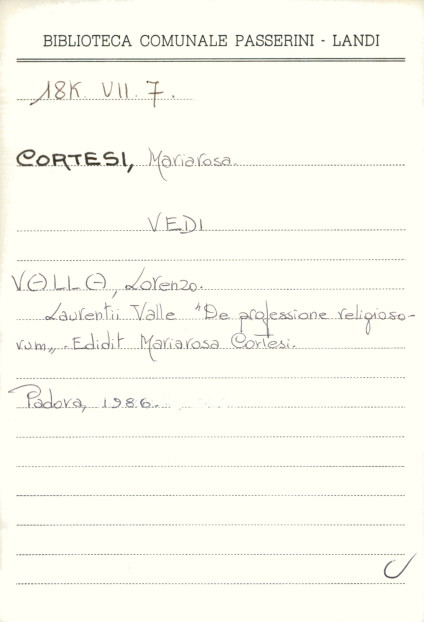 BIBLIOTECA COMUNALE PASSERINI - LANDI
18K VII. 7.
CORTESI, Mariarosa.
VEDI
VALLA, Lorenzo.
Laurentii Valle "De professione religioso-
rum„. Edidit Mariarosa Cortesi.
Padova, 1986.